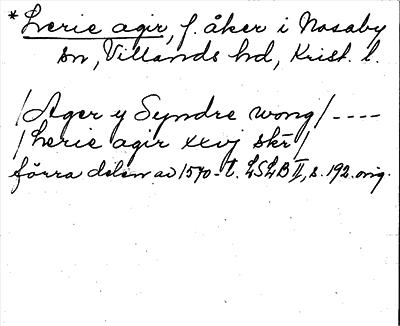 *Lerie agir, f. åker i Nosaby
sn, Villands hd, Krist. l.
/Ager y Syndre wong/ ----
/Lerie agir xxvj skr/
förra delen av 1570-t. LSLB II, s. 192. orig.